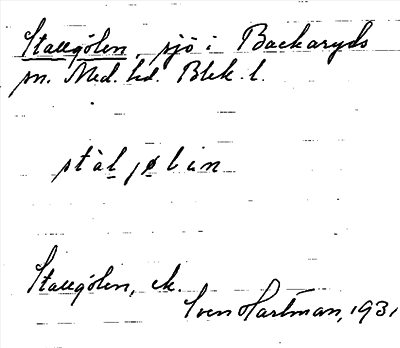 Stallgölen, sjö i Backaryds
sn. Med. hd. Blek. l.
stàl jø l ɩn
Stallgölen, ek.
Sven Hartman, 1931